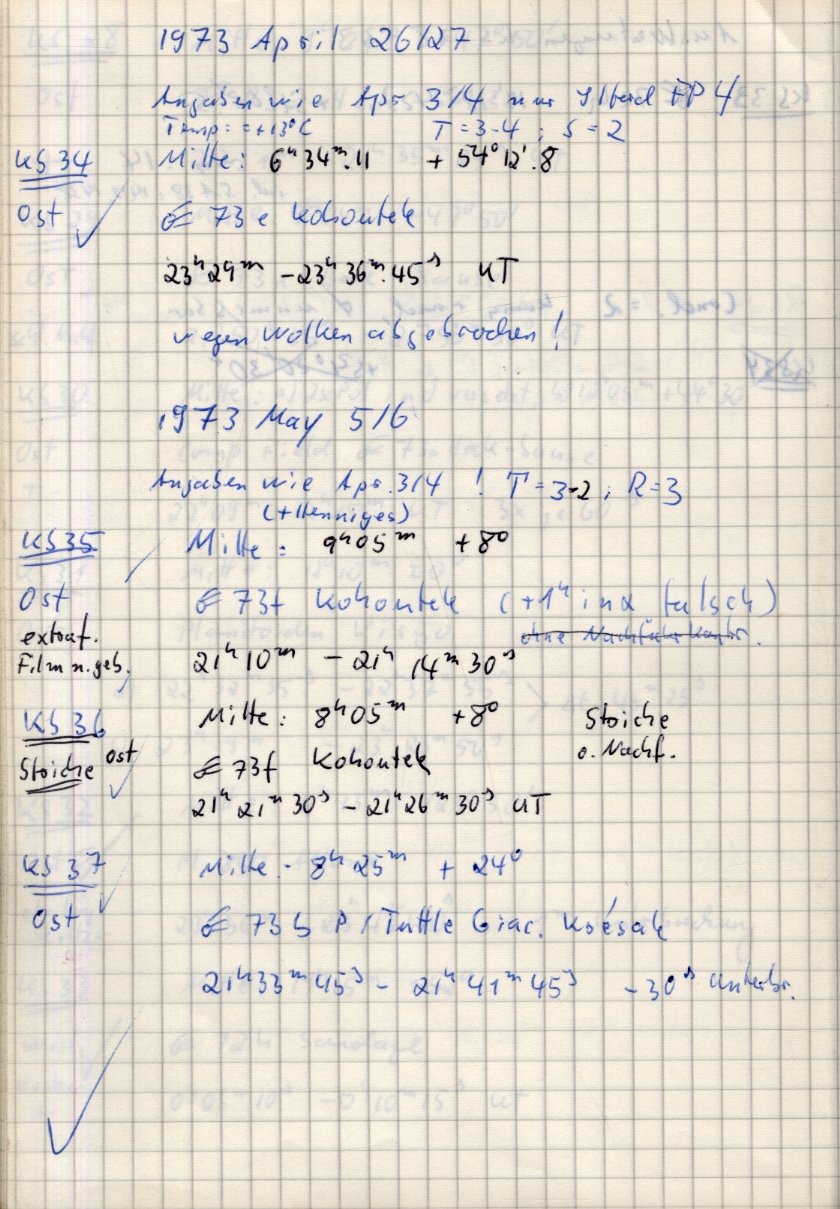 1973 April 26/27
Angaben wie Apr. 3/4 nur Ilford FP4
Temp: = +13°C T = 3-4 ; S = 2
KS 34 Mitte: 6ʰ34ᵐ.11 + 54°12'.8
Ost 73e Kohoutek
23ʰ29ᵐ – 23ʰ36ᵐ.45ˢ UT
wegen Wolken abgebrochen!
1973 May 5/6
Angaben wie Apr. 3/4 ! T = 3-2 ; R = 3
(+ Henniges)
KS 35 Mitte: 9ʰ05ᵐ +8°
Ost 73f Kohoutek (+1ʰ in α falsch)
extraf. ohne Nachführkontr.
Film n. geb. 21ʰ10ᵐ – 21ʰ14ᵐ30ˢ
KS 36 Mitte: 8ʰ05ᵐ +8° Stoiche
Stoiche Ost 73f Kohoutek o. Nachf.
21ʰ21ᵐ30ˢ – 21ʰ26ᵐ30ˢ UT
KS 37 Mitte: 8ʰ25ᵐ + 24°
Ost 73b P/Tuttle Giac. Krésak
21ʰ33ᵐ45ˢ – 21ʰ41ᵐ45ˢ – 30ˢ Unterbr.